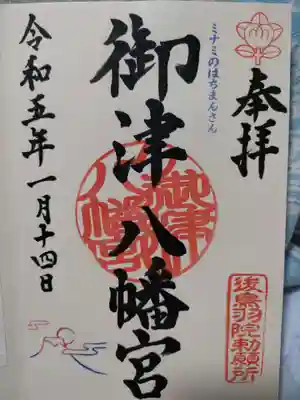 奉拝
後鳥羽院勅願所
ミナミのはちまんさん
御津八幡宮
御津八幡宮
令和五年一月十四日